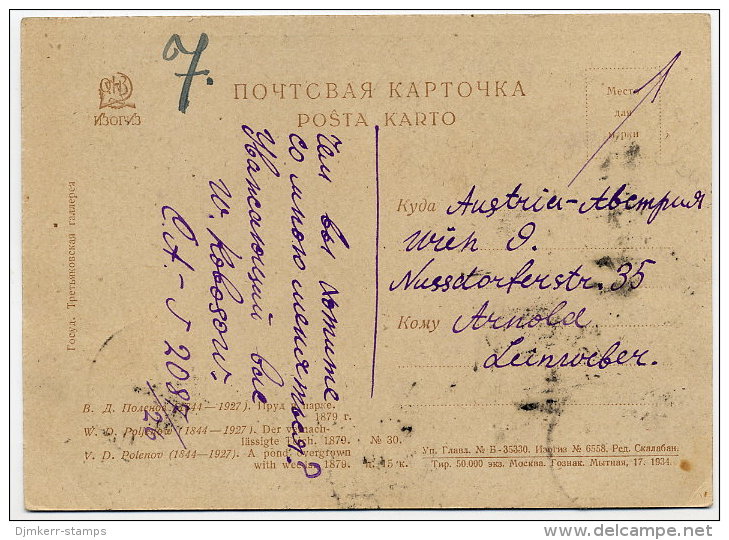 7.
ИЗОГИЗ
ПОЧТОВАЯ КАРТОЧКА
POŜTA KARTO
Место
для
марки
Госуд. Третьяковская галлерея
Чем вы хотите
со мною меняться?
Уважающий вас
W. Kobosow.
С.А.-J 2085
/26
Куда Austria-Австрия
Wien 9.
Nussdorferstr. 35
Кому Arnold
Leinweber.
В. Д. Поленов (1844—1927). Пруд в парке.
1879 г.
W. D. Polenow (1844—1927). Der vernach-
lässigte Teich. 1879. № 30.
V. D. Polenov (1844—1927). A pond overgrown
with weeds. 1879. Ц. 15 к.
Уп. Главл. № Б-35330. Изогиз № 6558. Ред. Скалабан.
Тир. 50.000 экз. Москва. Гознак. Мытная, 17. 1934.
Djmkerr-stamps
delcampe.net